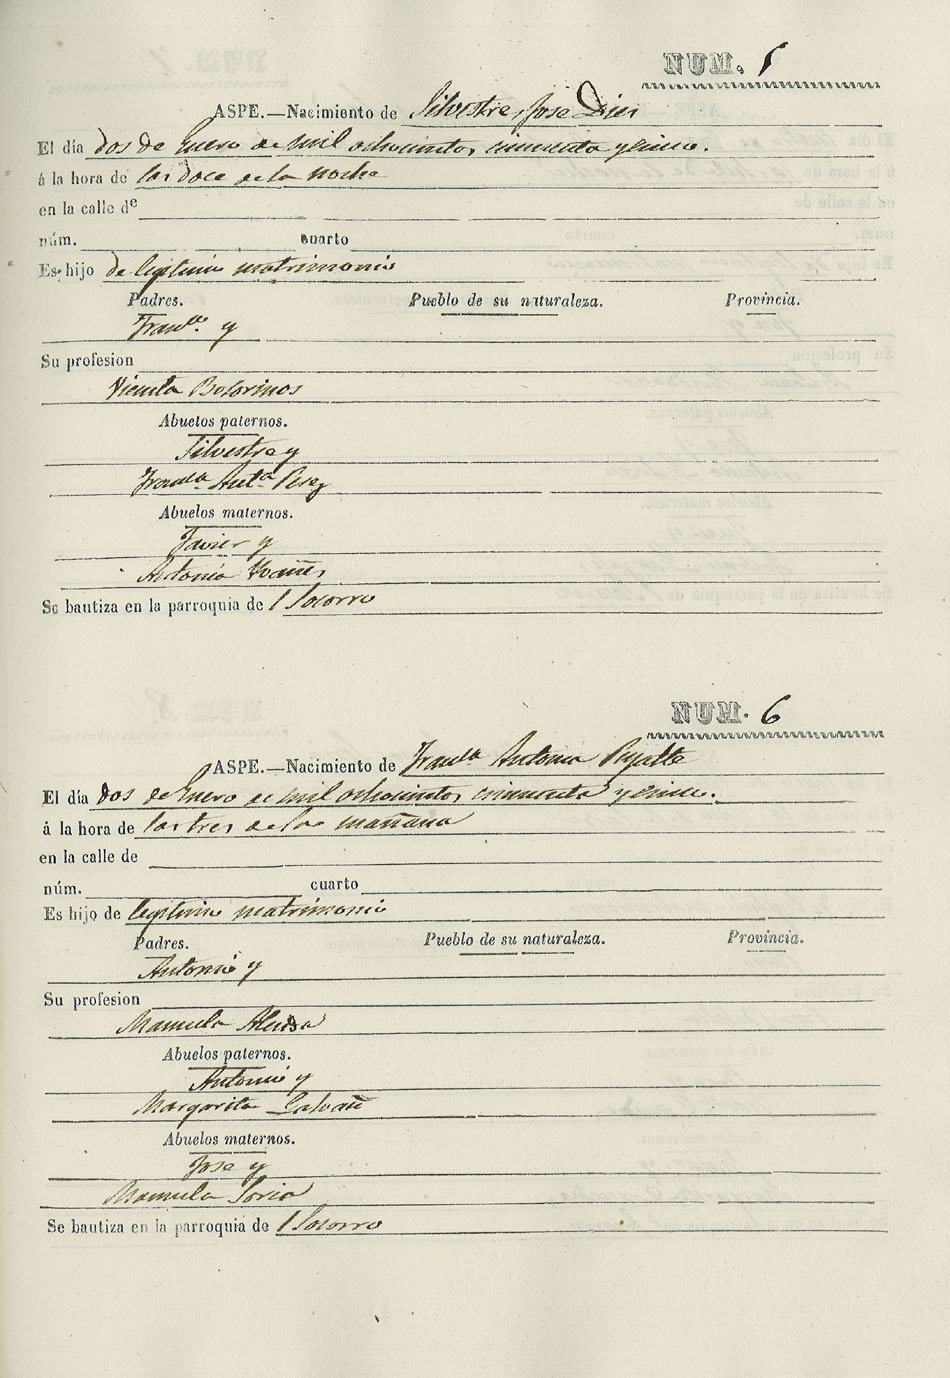 NUM. 5
ASPE.—Nacimiento de Silvestre Jose Dies
El día dos de Enero de mil ochocientos cincuenta y cinco.
á la hora de las doce de la noche
en la calle de
núm. cuarto
Es hijo de legitimo matrimonio
Padres. Pueblo de su naturaleza. Provincia.
Franco. y
Su profesion
Vicenta Botorinos
Abuelos paternos.
Silvestre y
Franca. Anta. Perez
Abuelos maternos.
Javier y
Antonia Yvañes
Se bautiza en la parroquia de l Socorro
NUM. 6
ASPE.—Nacimiento de Franca. Antonia Pujalte
El día dos de Enero de mil ochocientos cincuenta y cinco.
á la hora de las tres de la mañana
en la calle de
núm. cuarto
Es hijo de legitimo matrimonio
Padres. Pueblo de su naturaleza. Provincia.
Antonio y
Su profesion
Manuela
Abuelos paternos.
Antonio y
Margarita Galvañ
Abuelos maternos.
Jose y
Manuela Soria
Se bautiza en la parroquia de l Socorro